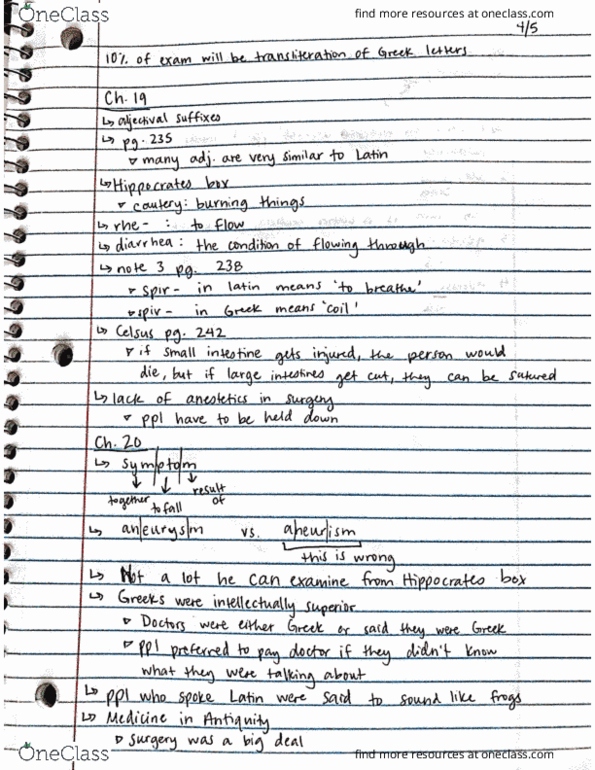 OneClass
find more resources at oneclass.com
4/5
10% of exam will be transliteration of Greek letters
Ch. 19
↳ adjectival suffixes
↳ pg. 235
▿ many adj. are very similar to Latin
↳ Hippocrates box
▿ cautery: burning things
↳ rhe- : to flow
↳ diarrhea: the condition of flowing through
↳ note 3 pg. 238
▿ spir- in latin means 'to breathe'
▿ spir- in Greek means 'coil'
↳ Celsus pg. 242
▿ if small intestine gets injured, the person would
die, but if large intestines get cut, they can be sutured
↳ lack of anestetics in surgery
▿ ppl have to be held down
Ch. 20
↳ sym|pto|m
together to fall result of
↳ an|eurys|m vs. aneur|ism
this is wrong
↳ Not a lot he can examine from Hippocrates box
↳ Greeks were intellectually superior
▿ Doctors were either Greek or said they were Greek
▿ ppl preferred to pay doctor if they didn't know
what they were talking about
↳ ppl who spoke Latin were said to sound like frogs
↳ Medicine in Antiquity
▿ surgery was a big deal
OneClass
find more resources at oneclass.com